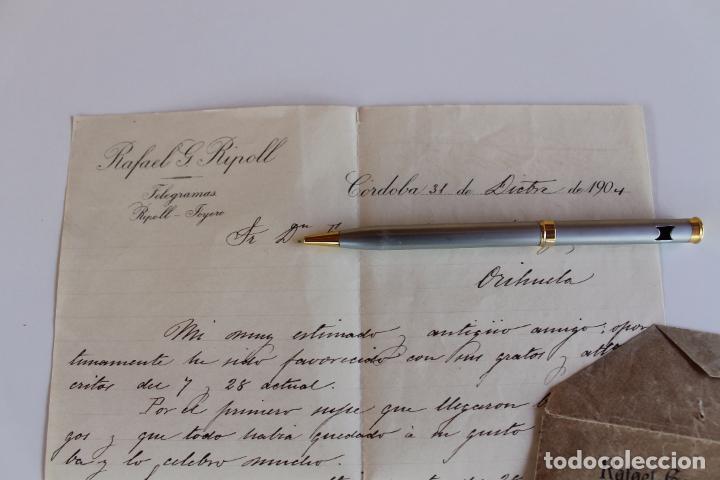 Rafael G. Ripoll
Telegramas
Ripoll - Joyero
Córdoba 31 de Dictre de 1904
Sr Dn
Orihuela
Mi muy estimado y antigüo amigo: opor
tunamente he sido favorecido con sus gratos y att
critas del 7 y 28 actual.
Por el primero supe que llegaron
gos y que todo habia quedado à su gusto
ba y lo celebro mucho.
Rafael G
todocoleccion.net